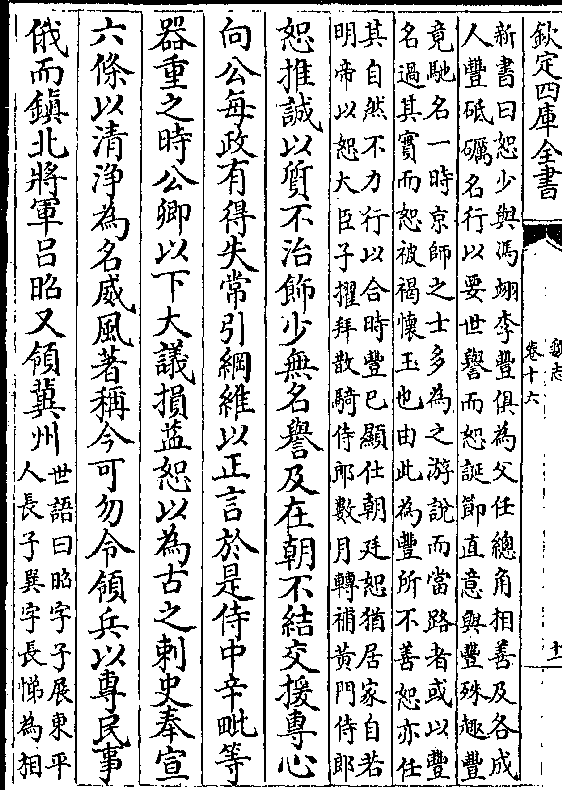 欽定四庫全書
魏志
卷十六
十一
新書曰恕少與馮翊李豐俱為父任總角相善及各成
人豐砥礪名行以要世譽而恕誕節直意與豐殊趣豐
竟馳名一時京師之士多為之游說而當路者或以豐
名過其實而恕被褐懷玉也由此為豐所不善恕亦任
其自然不力行以合時豐已顯仕朝廷恕猶居家自若
明帝以恕大臣子擢拜散騎侍郎數月轉補黃門侍郎
恕推誠以質不治飾少無名譽及在朝不結交援專心
向公每政有得失常引綱維以正言於是侍中辛毗等
器重之時公卿以下大議損益恕以為古之刺史奉宣
六條以清淨為名威風著稱今可勿令領兵以專民事
俄而鎮北將軍呂昭又領冀州
世語曰昭字子展東平
人長子巽字長悌為相